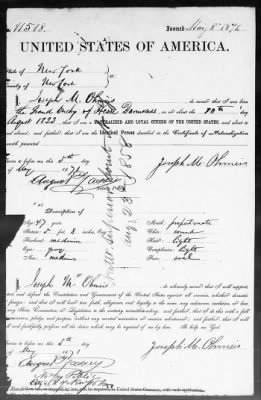 No 11518. Issued May 8" 1871
UNITED STATES OF AMERICA.
State of New York
County of New York
I, Joseph M. Ohmeis, do swear that I was born
in the Grand Duchy of Hesse Darmstadt, on or about the day of
August 1823, that I am a NATURALIZED AND LOYAL CITIZEN OF THE UNITED STATES, and
about and further, that I am the Identical Person described in the Certificate of Naturalization
herewith presented
Sworn to before me this 5th day
of May 1871
Joseph M. Ohmeis
Aug 23 1856
Description of
Age 47 years
Stature 5 feet 8 inches, Eng.
Forehead medium
Eyes grey
Nose medium
Mouth proportionate
Chin round
Hair light
Complexion light
Face oval
I, Joseph M. Ohmeis, do solemnly swear that I will support,
protect, and defend the Constitution and Government of the United States against all enemies, whether domestic
or foreign, and that I will bear true faith, allegiance, and loyalty to the same, any ordinance, resolution or law
of any State, Convention, or Legislature to the contrary notwithstanding; and further, that I do this with a full
determination, pledge, and purpose, without any mental reservation or evasion whatsoever; and further, that I will
well and faithfully perform all the duties which may be required of me by law. So help me God
Sworn to before me this 5th
day of May 1871
Joseph M. Ohmeis
Notary Public